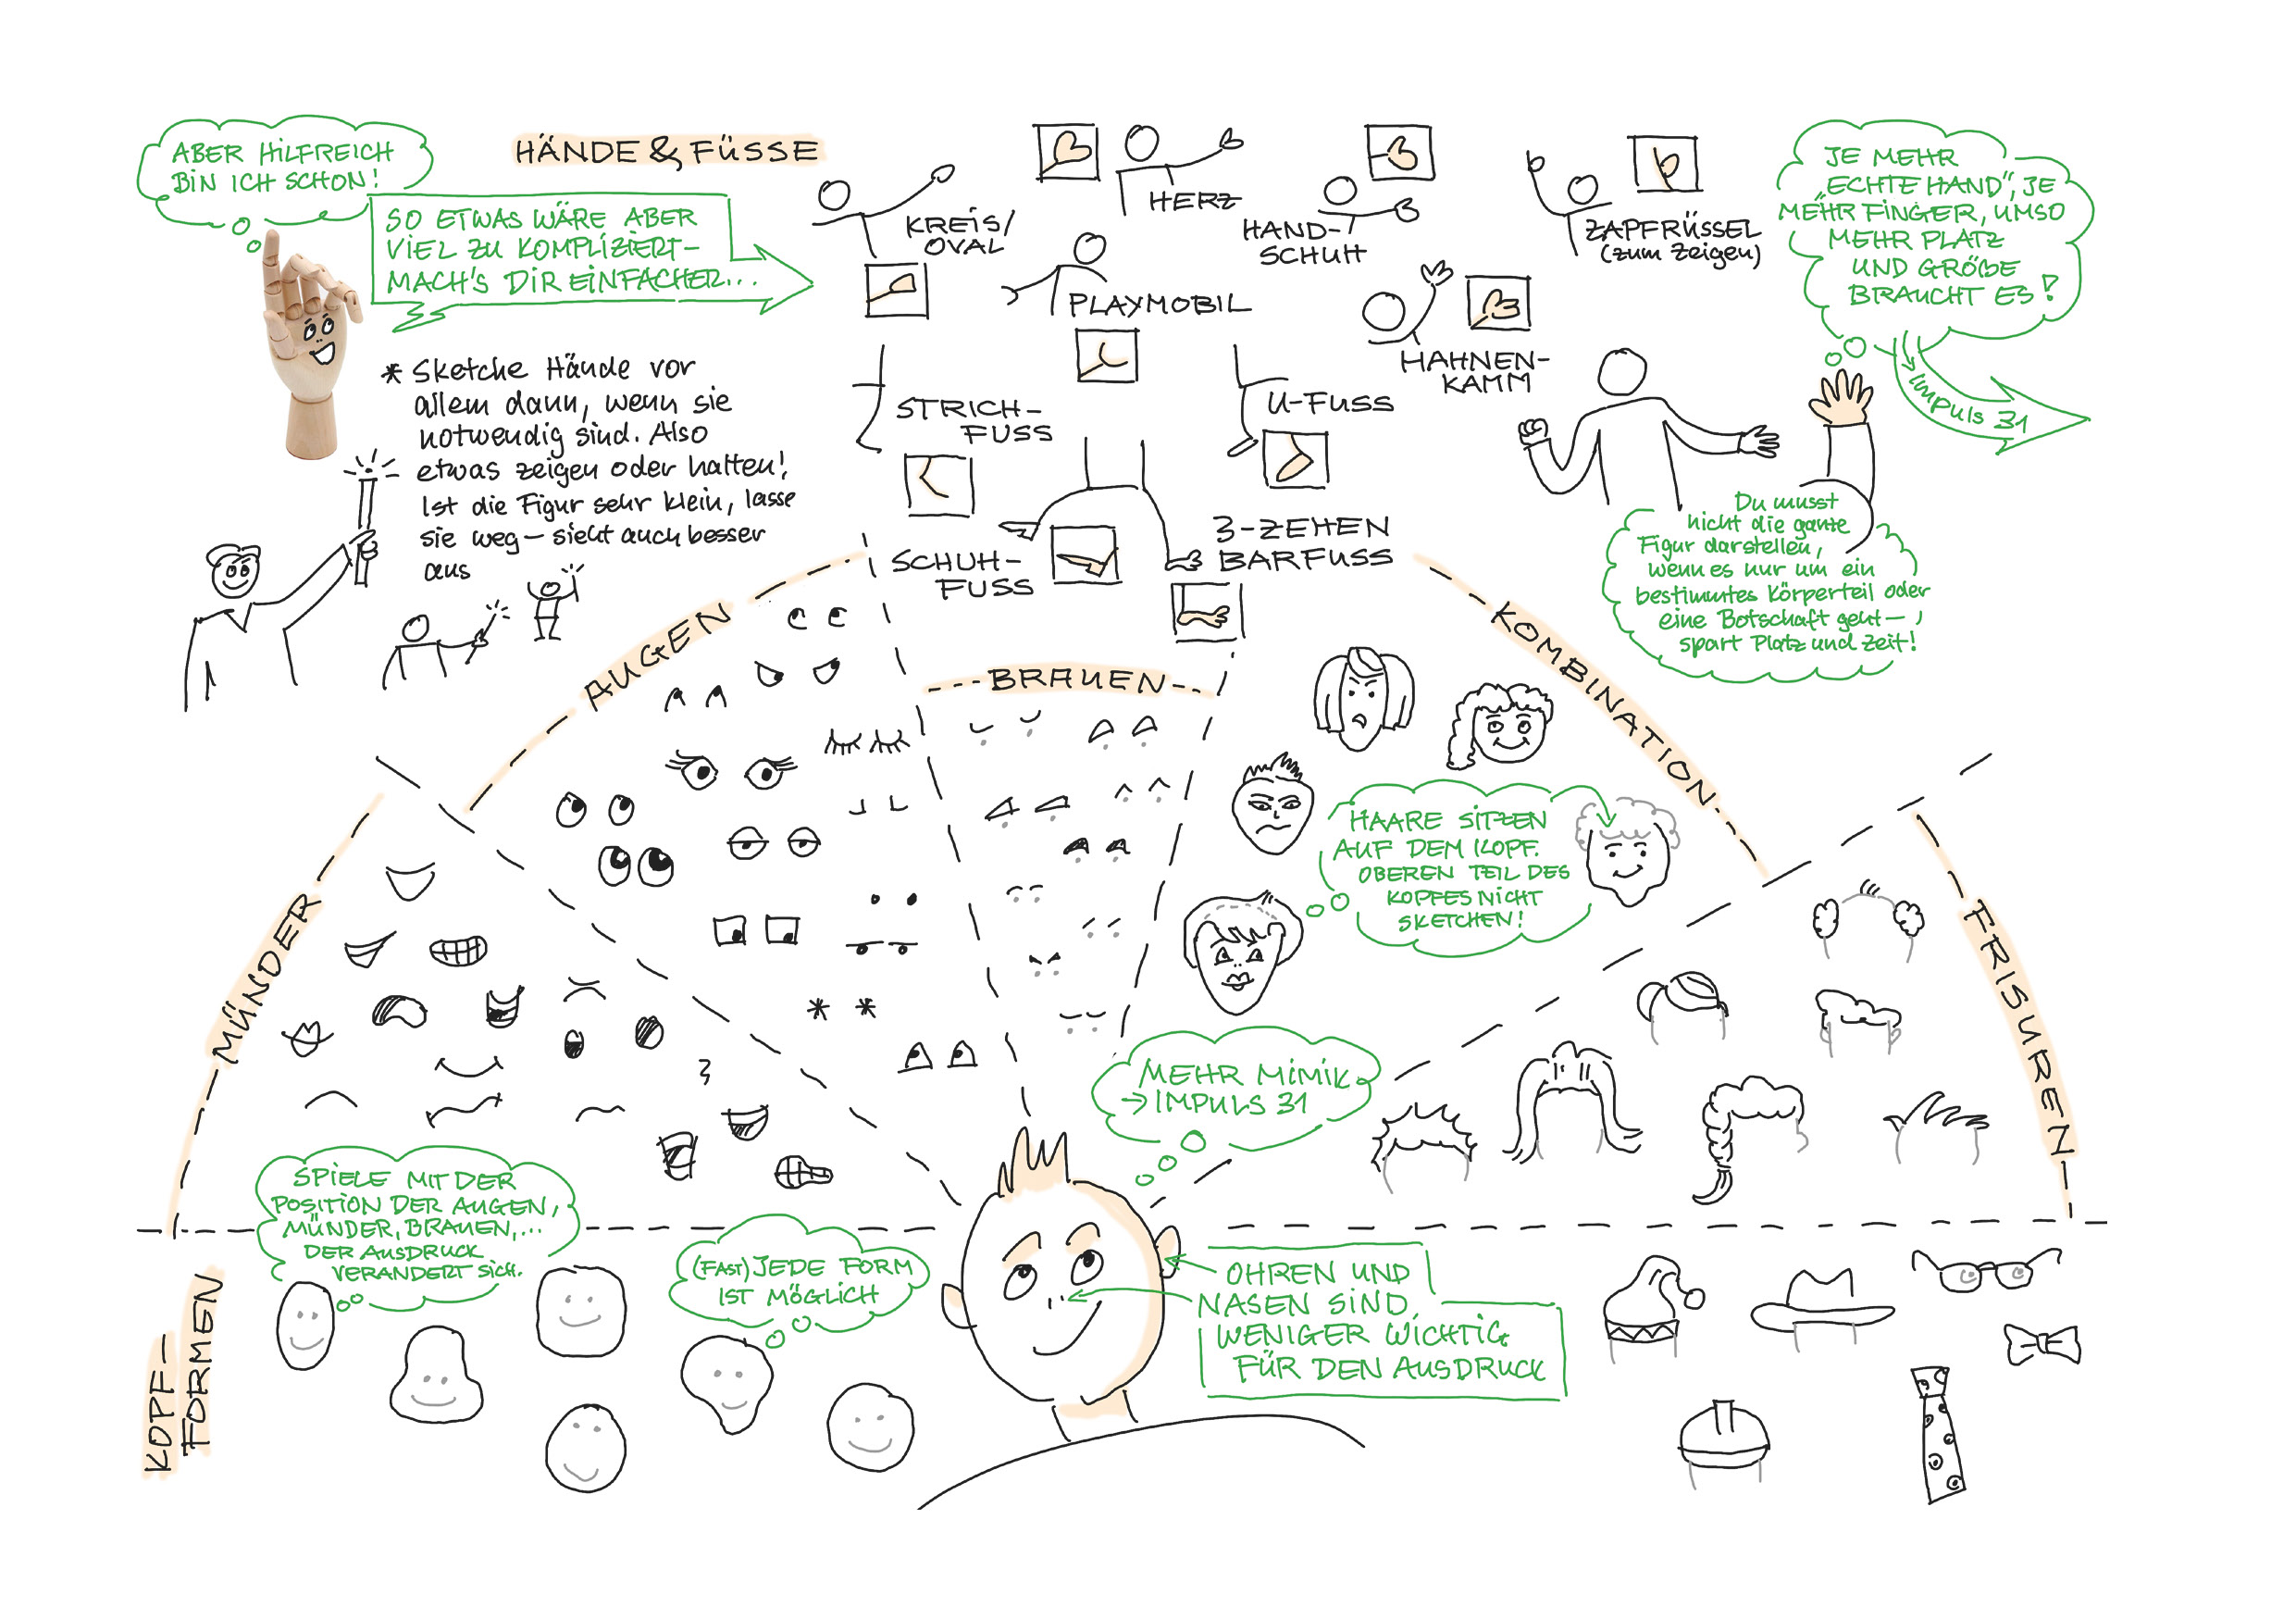 ABER HILFREICH
BIN ICH SCHON!
HÄNDE & FÜSSE
SO ETWAS WÄRE ABER
VIEL ZU KOMPLIZIERT-
MACH'S DIR EINFACHER...
KREIS/
OVAL
HERZ
HAND-
SCHUH
ZAPFRÜSSEL
(zum zeigen)
PLAYMOBIL
HAHNEN-
KAMM
JE MEHR
„ECHTE HAND", JE
MEHR FINGER, UMSO
MEHR PLATZ
UND GRÖßE
BRAUCHT ES!
→ Impuls 31
* Sketche Hände vor
allem dann, wenn sie
notwendig sind. Also
etwas zeigen oder halten!
Ist die Figur sehr klein, lasse
sie weg – sieht auch besser
aus
STRICH-
FUSS
U-FUSS
SCHUH-
FUSS
3-ZEHEN
BARFUSS
Du musst
nicht die ganze
Figur darstellen,
wenn es nur um ein
bestimmtes Körperteil oder
eine Botschaft geht –
spart Platz und Zeit!
AUGEN
BRAUEN
KOMBINATION
HAARE SITZEN
AUF DEM KOPF.
OBEREN TEIL DES
KOPFES NICHT
SKETCHEN!
MÜNDER
FRISUREN
MEHR MIMIK
→ IMPULS 31
SPIELE MIT DER
POSITION DER AUGEN,
MÜNDER, BRAUEN,...
DER AUSDRUCK
VERÄNDERT SICH.
(FAST) JEDE FORM
IST MÖGLICH
OHREN UND
NASEN SIND
WENIGER WICHTIG
FÜR DEN AUSDRUCK
KOPF-
FORMEN